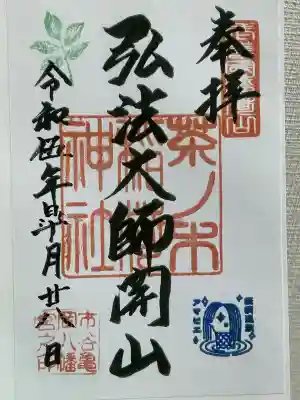 奉拝
弘法大師開山
茶ノ木
稲荷
神社
令和伍年 月廿 日
市谷亀
岡八幡
宮之印
アマビエ